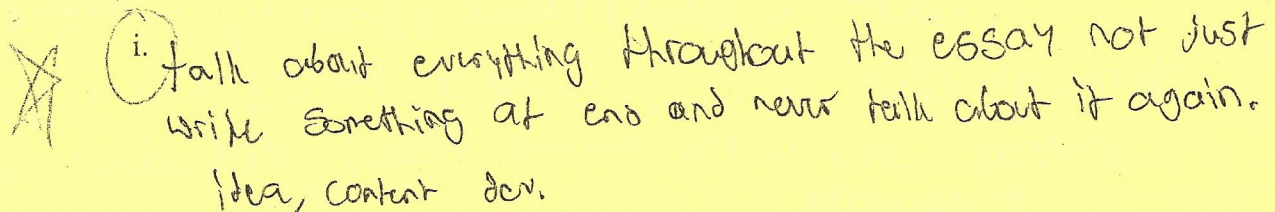 i. talk about everything throughout the essay not just
write something at end and never talk about it again.
idea, content dev.